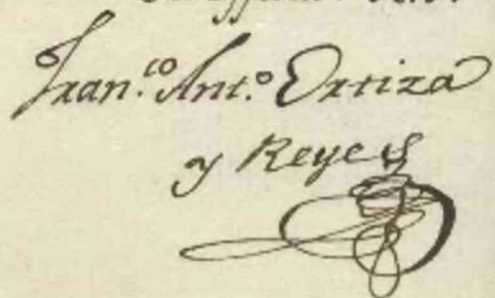 Fran.co Ant.o Ortiza
y Reyes